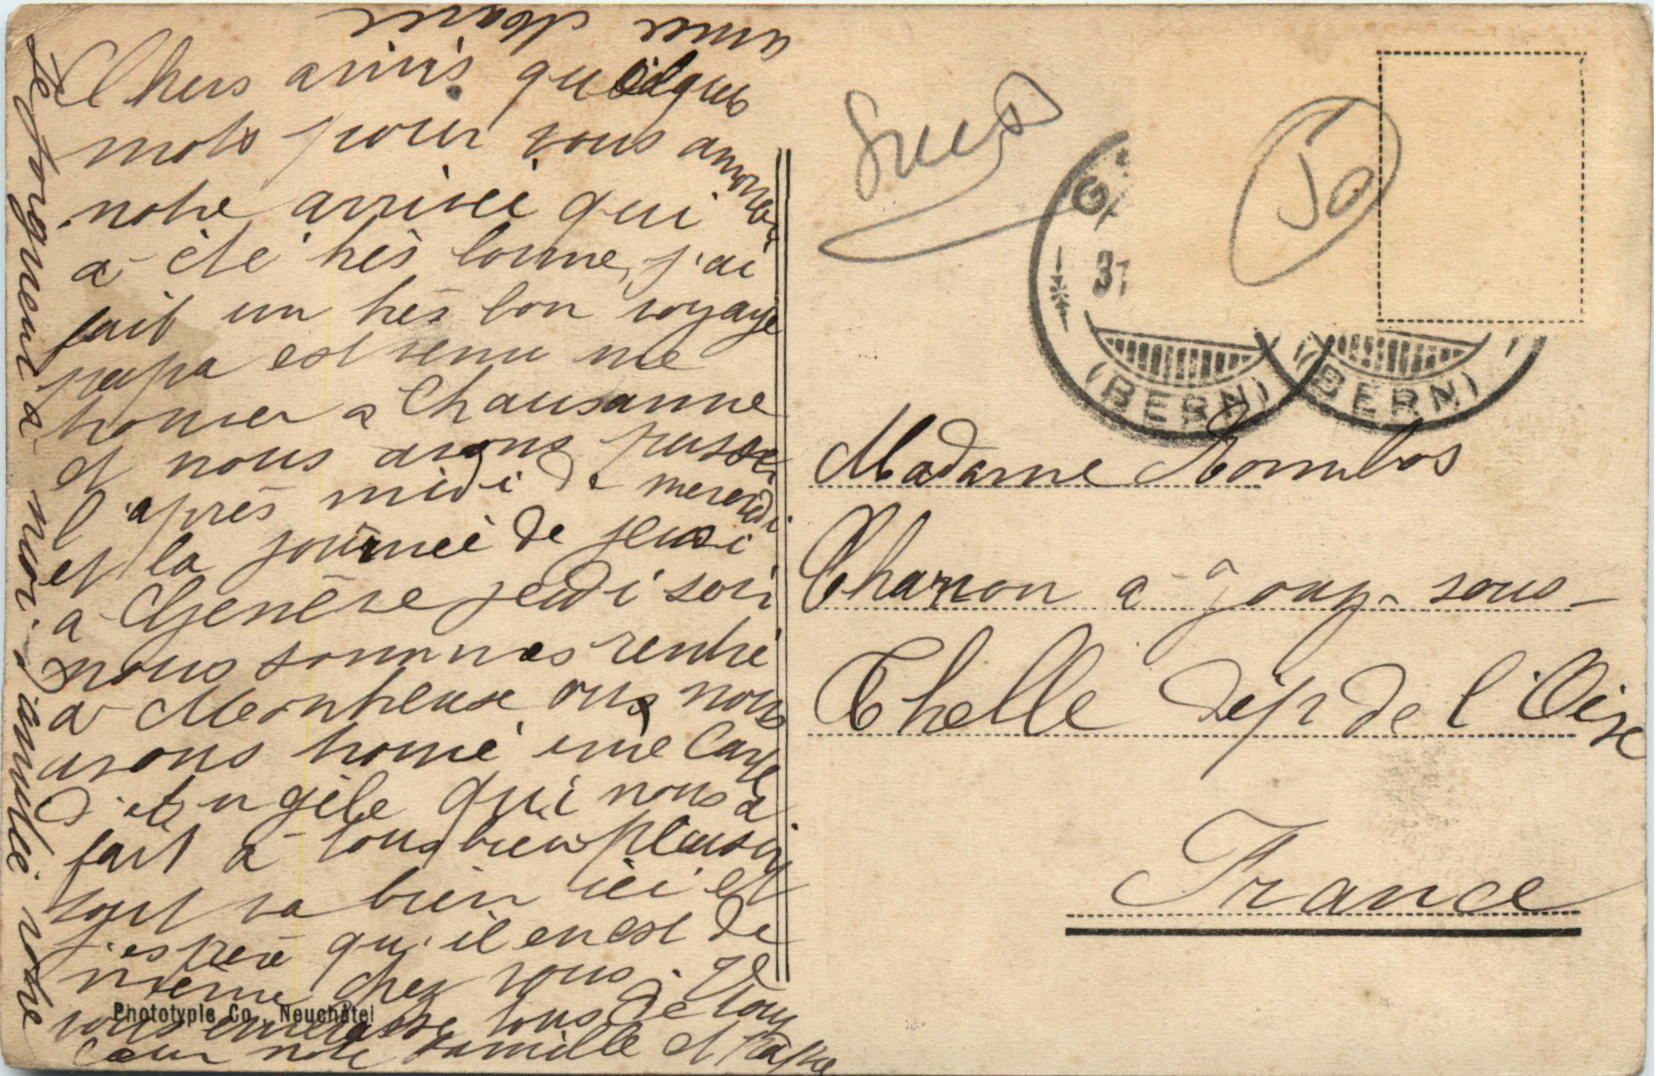 Chers amis quelques
mots pour vous annoncer
notre arrivée qui
a été très bonne, j'ai
fait un très bon voyage
papa est venu me
trouver a Chausanne
et nous avons passer
l'après midi de mercredi
et la journée de jeudi
a Genève jeudi soir
nous sommes rentré
a Montreux ou nous
avons trouvé une carte
d'Angèle qui nous a
fait a tous bien plaisir
tout va bien ici et
j'espère qu'il en est de
même chez vous. Nous
vous embrasse tous de tout
cœur notre famille et
Le Jorgneux a moi d'amitié votre
amie Marie
Phototypie Co., Neuchâtel
Suess
50
G
31
(BERN)
(BERN)
Madame
Charron a Jouy-sous-
Thelle Dép de l'Oise
France